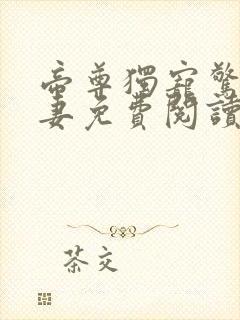 帝尊獨寵驚
妻免費閱讀
茶交